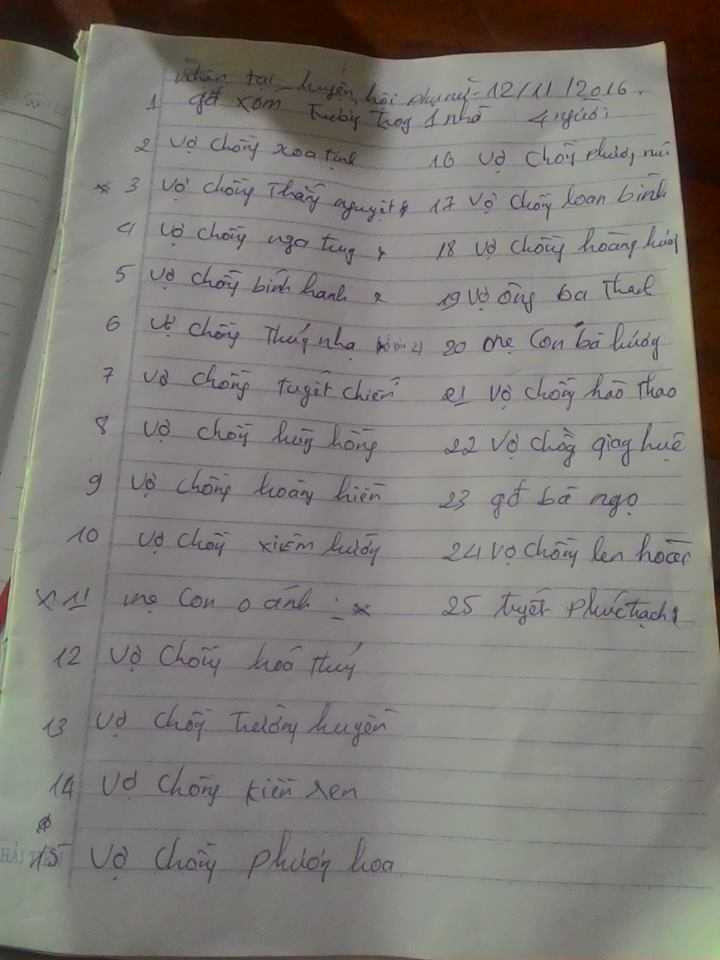 huyện hội phụ nữ - 12/11/2016.
1 gđ xóm trưởng trong 1 nhà 4 người
2 vợ chồng xoa tịnh
3 vợ chồng Thắng nguyệt
4 vợ chồng nga tung
5 vợ chồng bính hanh
6 vợ chồng Thúy nhạ
7 vợ chồng tuyết chiến
8 vợ chồng hùng hồng
9 vợ chồng hoàng hiền
10 vợ chồng xiêm hướng
x 11 mẹ con o ánh : x
12 vợ chồng hoá thuý
13 vợ chồng trường huyền
14 vợ chồng kiên ren
15 vợ chồng phương hoa
16 vợ chồng
17 vợ chồng loan bính
18 vợ chồng hoàng
19 vợ ông ba
20 mẹ con bà hương
21 vợ chồng hào thao
22 vợ chồng giang huệ
23 gđ bà ngọ
24 vợ chồng len
25 tuyết phúc trạch